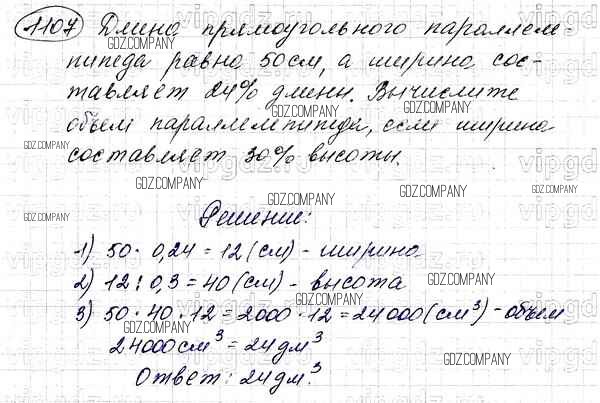 1107 Длина прямоугольного параллеле-
пипеда равна 50см, а ширина сос-
тавляет 24% длины. Вычислите
объем параллелепипеда, если ширина
составляет 30% высоты.
Решение:
1) 50 · 0,24 = 12 (см) - ширина
2) 12 : 0,3 = 40 (см) - высота
3) 50 · 40 · 12 = 2000 · 12 = 24000 (см³) - объем
24000 см³ = 24 дм³
Ответ: 24 дм³.
GDZ.COMPANY
GDZ.COMPANY
GDZ.COMPANY
GDZ.COMPANY
GDZ.COMPANY
GDZ.COMPANY
GDZ.COMPANY
GDZ.COMPANY
GDZ.COMPANY
GDZ.COMPANY
GDZ.COMPANY
GDZ.COMPANY
GDZ.COMPANY
GDZ.COMPANY